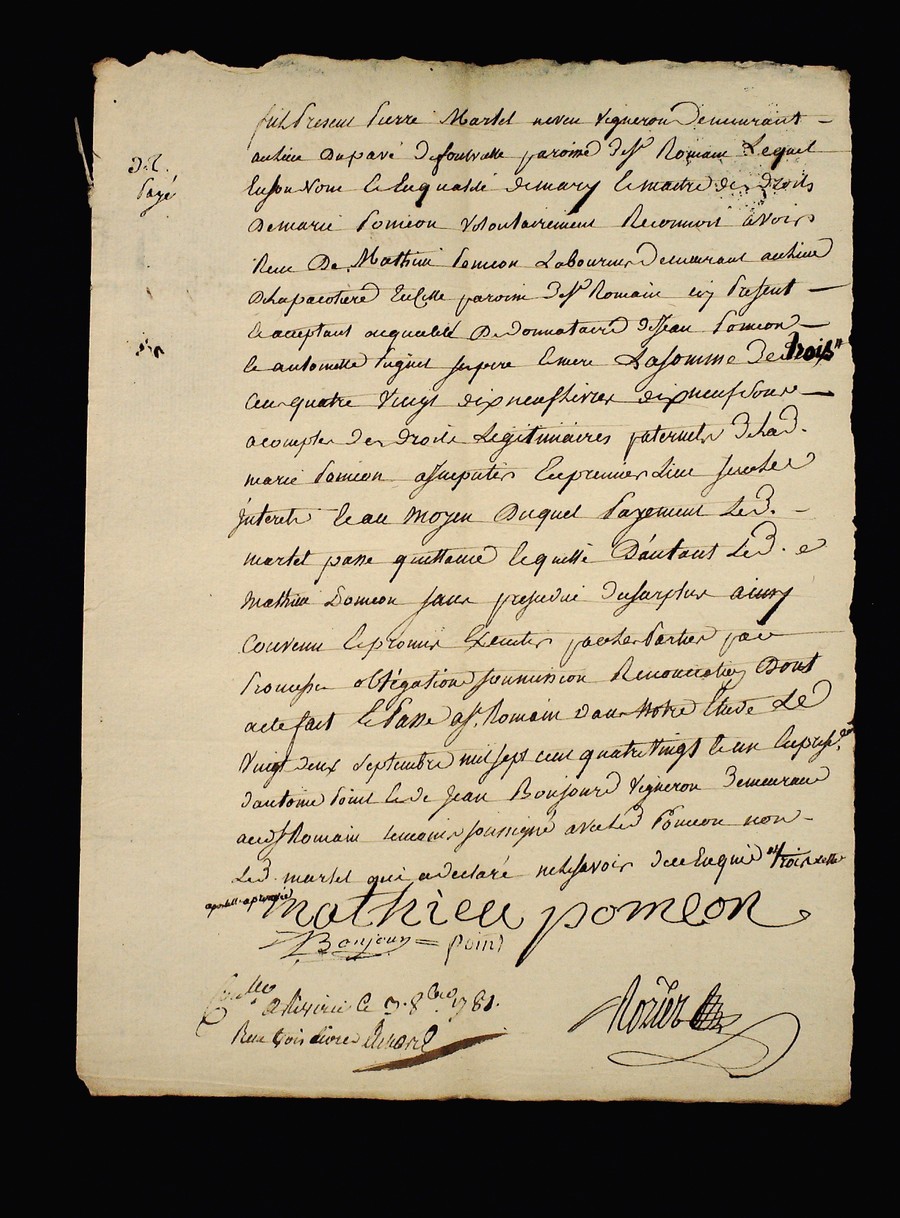 fut Present Pierre Martel neveu Vigneron Demeurant
au lieu Du pavé paroisse de St Romain Lequel
En son Nom et En qualité de mary et maitre des Droits
De marie Poméon Volontairement Reconnoit avoir
Reçu De Mathieu Poméon Laboureur Demeurant au lieu
De la pacotiere Susditte paroisse de St Romain icy Present
et acceptant en qualité De Donnataire de Jean Poméon
et antoinette ses pere et mere La somme de trois
Cent quatre Vingt dix neuf Livres dix neuf Sous
acompte des droits Legitimaires paternels de lad.
marie Poméon a Imputer En premier Lieu sur les
Interets et au moyen Duquel Payement Led.
martel passe quittance et quitte D'autant Led.
Mathieu Poméon sans prejudice du surplus ainsy
Convenu et promis Executer par les Parties par
Promesse obligation soumission Renonciation Dont
acte fait et Passé a St Romain dans Notre Etude Le
Vingt deux Septembre mil sept cent quatre Vingt et un En presence
d'antoine Point et de Jean Bonjour Vigneron Demeurant
aud St Romain temoins soussigné avec led Poméon non
Led. martel qui a declaré ne le savoir de ce Enquis trois
mathieu pomeon
Bonjour = point
Collé a le 3. 8bre 1781.
Reçu trois livres
Rozier
D.R.
Payé